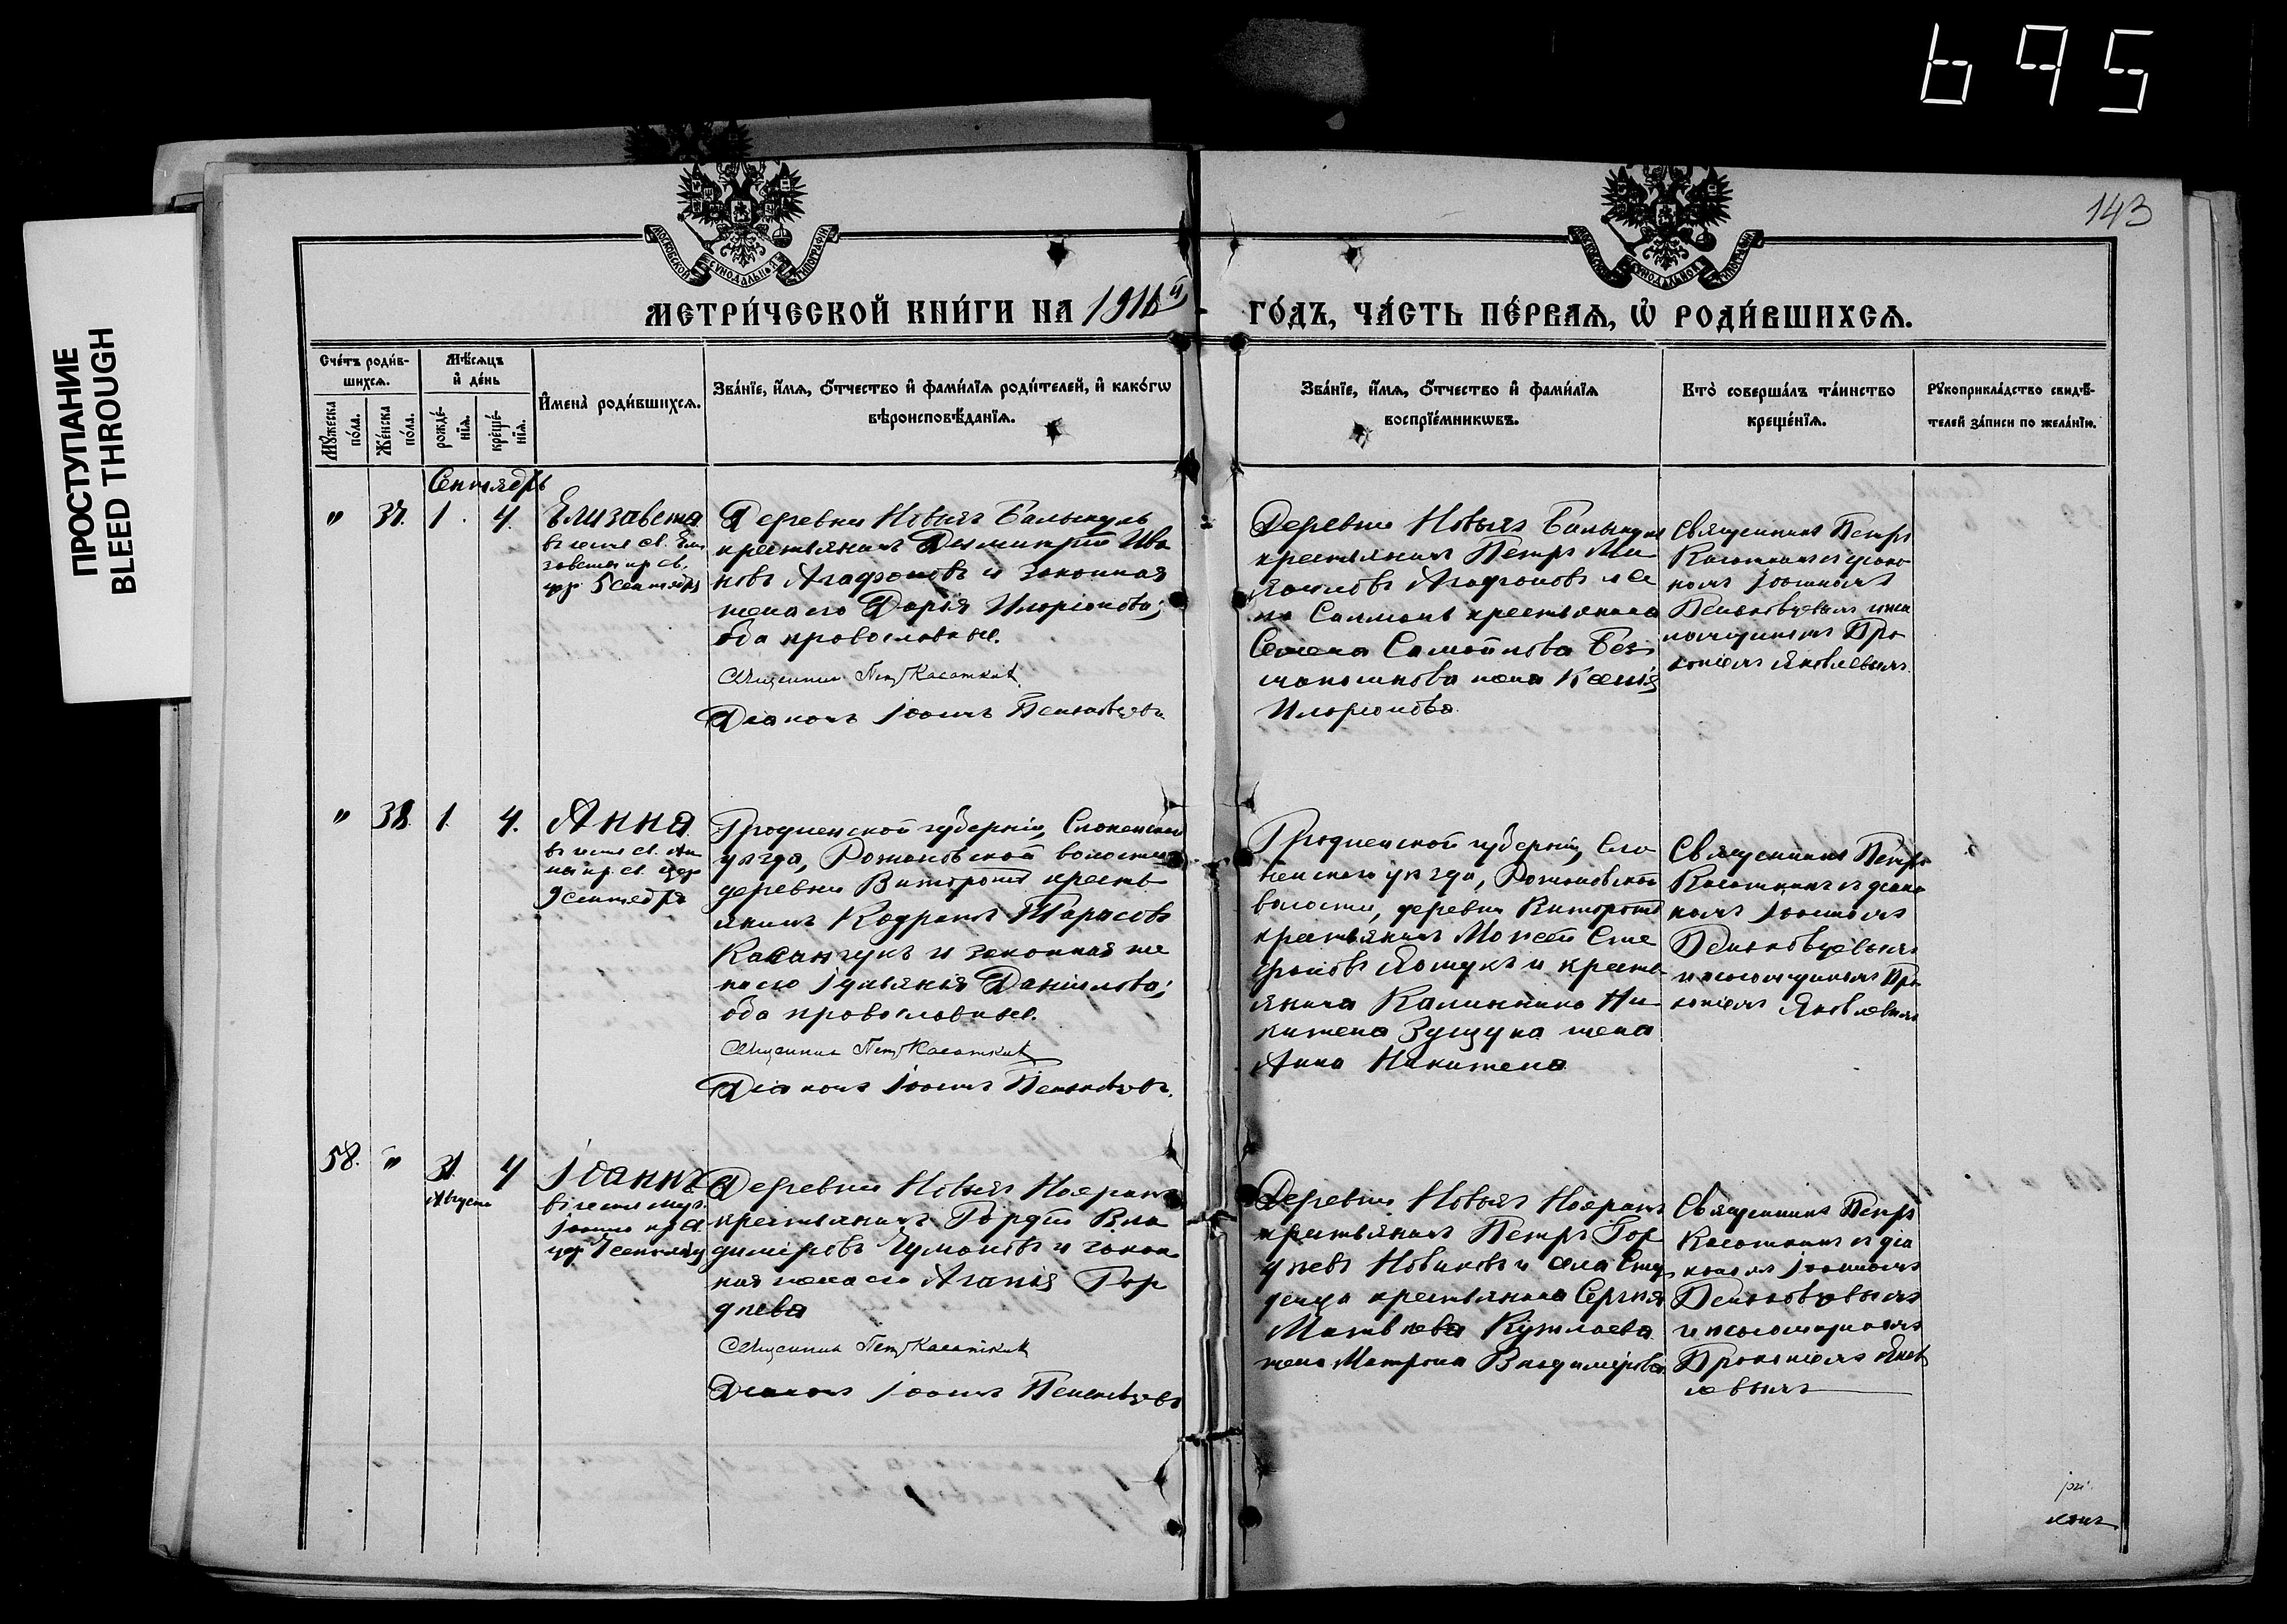 695
143
ПРОСТУПАНИЕ
BLEED THROUGH
МОСКОВСКОЙ СѴНОДАЛЬНОЙ ТИПОГРАФІИ
МОСКОВСКОЙ СѴНОДАЛЬНОЙ ТИПОГРАФІИ
МЕТРИ́ЧЕСКОЙ КНИ́ГИ НА 1916й ГО́ДЪ, ЧА́СТЬ ПЕ́РВАѦ, Ѡ҆ РОДИ́ВШИХСѦ.
Сче́тъ роди́в-
шихсѧ.
Мꙋ́жеска
по́ла.
Же́нска
по́ла.
Мѣ́сѧцъ
и҆ де́нь
рожде́-
нїѧ.
креще́-
нїѧ.
И҆мена̀ роди́вшихсѧ.
Зва́нїе, и҆́мѧ, ѻ҆́тчество и҆ фами́лїѧ роди́телей, и҆ како́гѡ
вѣроисповѣ́данїѧ.
Зва́нїе, и҆́мѧ, ѻ҆́тчество и҆ фами́лїѧ
воспрїе́мникѡвъ.
Кто̀ соверша́лъ та́инство
креще́нїѧ.
Рꙋкоприкла́дство свидѣ́-
телей за́писи по жела́нїю.
Сентябрь
" 37. 1. 4. Елизавета
въ честь св. Ели
заветы пр. св.
цер. 5 сентября
Деревни Новыхъ
крестьянинъ Димитрій Ива
новъ Агафоновъ и законная
жена его Дарія Иларіонова;
оба православные.
Священникъ Петръ Касаткинъ
Діаконъ Іоаннъ Пеньковцевъ
Деревни Новыхъ
крестьянинъ Петръ Ми
хаиловъ Агафоновъ и се
ла крестьянина
Семена Самойлова Без
жена Ксенія
Иларіонова
Священникъ Петръ
Касаткинъ съ діако
номъ Іоанномъ
Пеньковцевымъ и пса
ломщикомъ Про
копіемъ Яковлевымъ
" 38. 1. 4. Анна
въ честь св. Ан
ны пр. св. цер.
9 сентября
Гродненской губерніи, Слонимскаго
уѣзда, Рожановской волости
деревни крестья
янинъ Кодратъ Тарасовъ
и законная же
на его Іуліанія Даніилова;
оба православные.
Священникъ Петръ Касаткинъ
Діаконъ Іоаннъ Пеньковцевъ.
Гродненской губерніи, Сло
нимскаго уѣзда, Рожановской
волости, деревни
крестьянинъ Моисей Сте
фановъ и кресть
янина Калинника Ни
китина жена
Анна Никитина
Священникъ Петръ
Касаткинъ съ діако
номъ Іоанномъ
Пеньковцевымъ
и псаломщикомъ Про
копіемъ Яковлевымъ
58. " 31. 4 Іоаннъ
Августа
въ честь муч.
Іоанна пр. св.
цер. сентября
Деревни Новыхъ
крестьянинъ Гордій Вла
диміровъ Чумаковъ и закон
ная жена его Агапія Гор
дѣева
Священникъ Петръ Касаткинъ
Діаконъ Іоаннъ Пеньковцевъ
Деревни Новыхъ
крестьянинъ Петръ Гор
дѣевъ Новиковъ и села Сту
денца крестьянина Сергія
Матвѣева
жена Матрона Владимірова
Священникъ Петръ
Касаткинъ съ діа
кономъ Іоанномъ
Пеньковцевымъ
и псаломщикомъ
Прокопіемъ Яков
левымъ